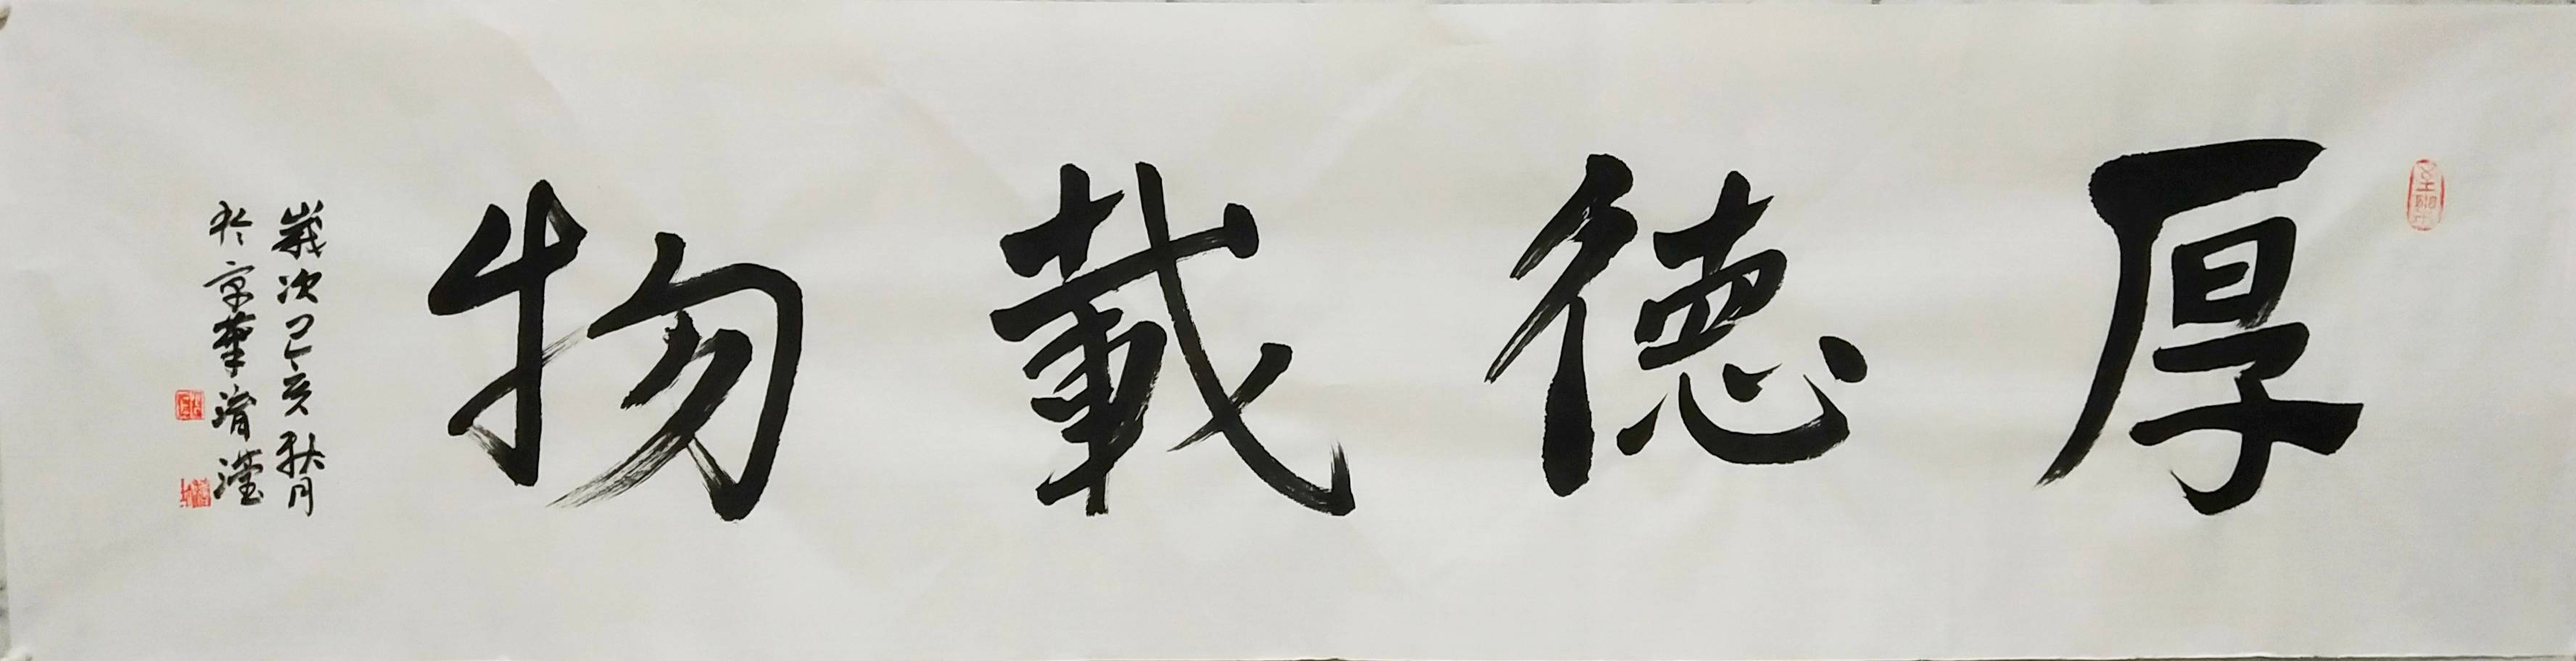 厚德載物
歲次己亥秋月
於京華清瀅